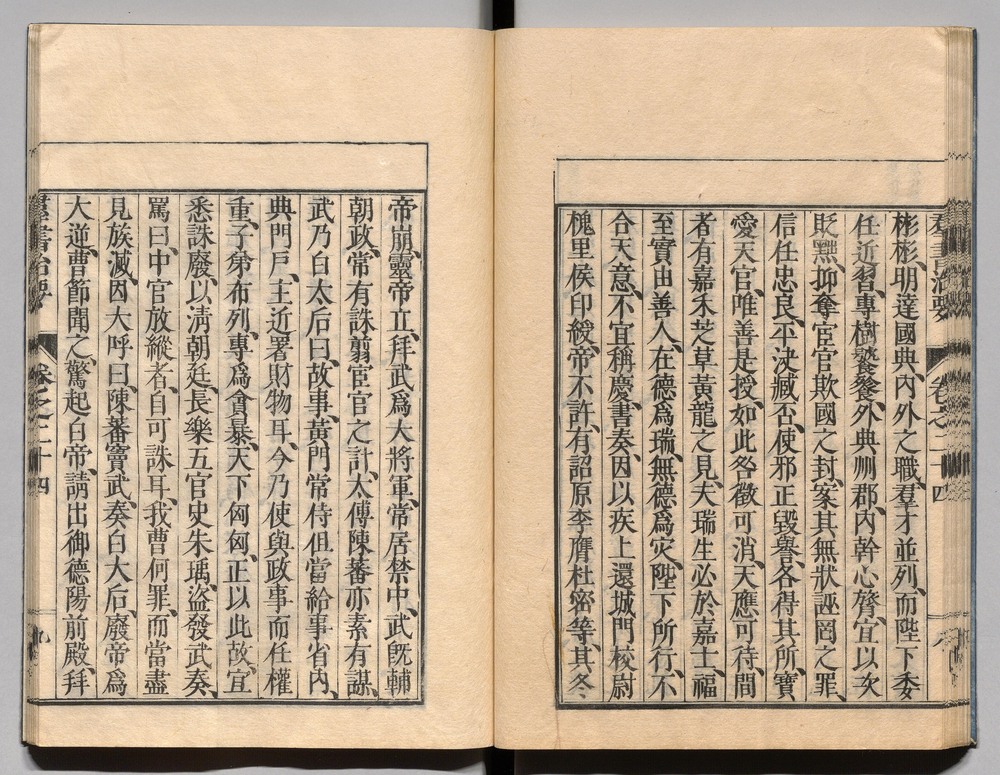 羣書治要 卷之二十四 八
彬彬明達國典、內外之職、羣才並列、而陛下委
任近習、專樹饕餮、外典州郡、內幹心膂、宜以次
貶黜、抑奪宦官欺國之封、案其無狀誣罔之罪、
信任忠良、平決臧否、使邪正毀譽、各得其所、寶
愛天官、唯善是授、如此咎徵可消、天應可待、間
者有嘉禾芝草黃龍之見、夫瑞生必於嘉士、福
至實由善人、在德爲瑞、無德爲災、陛下所行、不
合天意、不宜稱慶、書奏、因以疾上還城門校尉
槐里侯印綬、帝不許、有詔原李膺杜密等、其冬
帝崩、靈帝立、拜武爲大將軍、常居禁中、武既輔
朝政、常有誅翦宦官之計、太傅陳蕃亦素有謀、
武乃白太后曰、故事、黃門常侍但當給事省內、
典門戶、主近署財物耳、今乃使與政事而任權
重、子弟布列、專爲貪暴、天下匈匈、正以此故、宜
悉誅廢、以清朝廷、長樂五官史朱瑀、盜發武奏、
罵曰、中官放縱者、自可誅耳、我曹何罪、而當盡
見族滅、因大呼曰、陳蕃竇武、奏白太后、廢帝爲
大逆、曹節聞之、驚起白帝、請出御德陽前殿、拜
羣書治要 卷之二十四 九